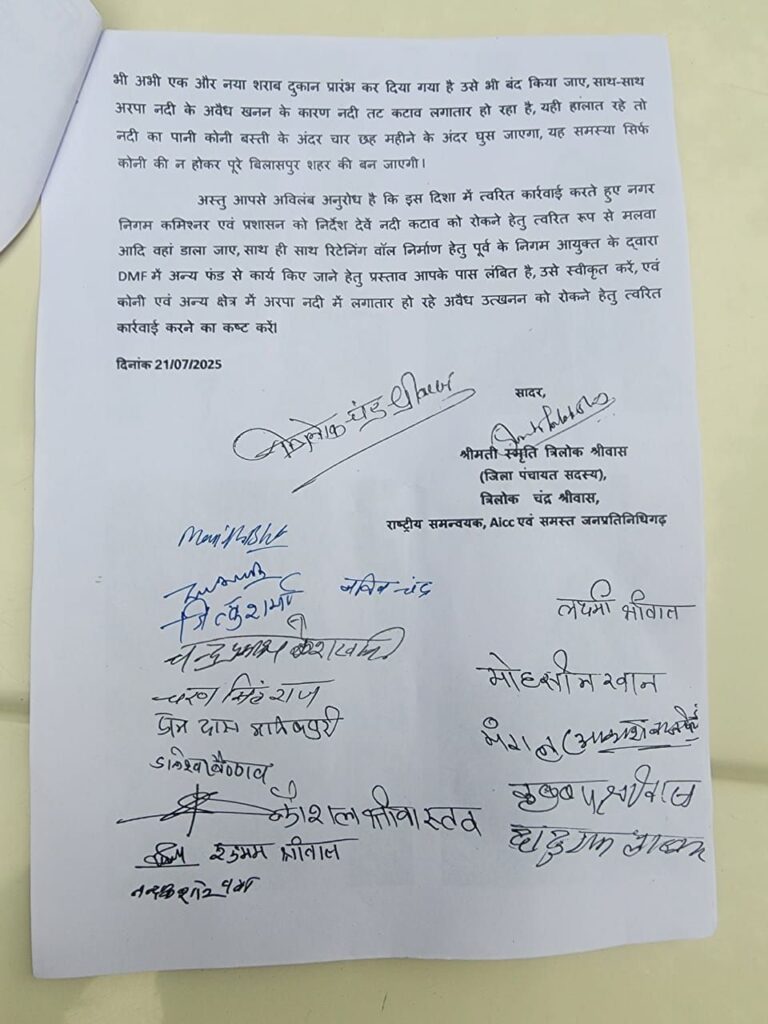 भी अभी एक और नया शराब दुकान प्रारंभ कर दिया गया है उसे भी बंद किया जाए, साथ-साथ
अरपा नदी के अवैध खनन के कारण नदी तट कटाव लगातार हो रहा है, यही हालात रहे तो
नदी का पानी कोनी बस्ती के अंदर चार छह महीने के अंदर घुस जाएगा, यह समस्या सिर्फ
कोनी की न होकर पूरे बिलासपुर शहर की बन जाएगी।
अस्तु आपसे अविलंब अनुरोध है कि इस दिशा में त्वरित कार्रवाई करते हुए नगर
निगम कमिश्नर एवं प्रशासन को निर्देश देवें नदी कटाव को रोकने हेतु त्वरित रूप से मलवा
आदि वहां डाला जाए, साथ ही साथ रिटेनिंग वॉल निर्माण हेतु पूर्व के निगम आयुक्त के द्वारा
DMF में अन्य फंड से कार्य किए जाने हेतु प्रस्ताव आपके पास लंबित है, उसे स्वीकृत करें, एवं
कोनी एवं अन्य क्षेत्र में अरपा नदी में लगातार हो रहे अवैध उत्खनन को रोकने हेतु त्वरित
कार्रवाई करने का कष्ट करें।
दिनांक 21/07/2025
सादर,
श्रीमती स्मृति त्रिलोक श्रीवास
(जिला पंचायत सदस्य),
त्रिलोक चंद्र श्रीवास,
राष्ट्रीय समन्वयक, Aicc एवं समस्त जनप्रतिनिधिगढ़
लक्ष्मी श्रीवास
मोहसीन खान
चरण सिंह राज
प्रेम दास मानिकपुरी
कौशल श्रीवास्तव